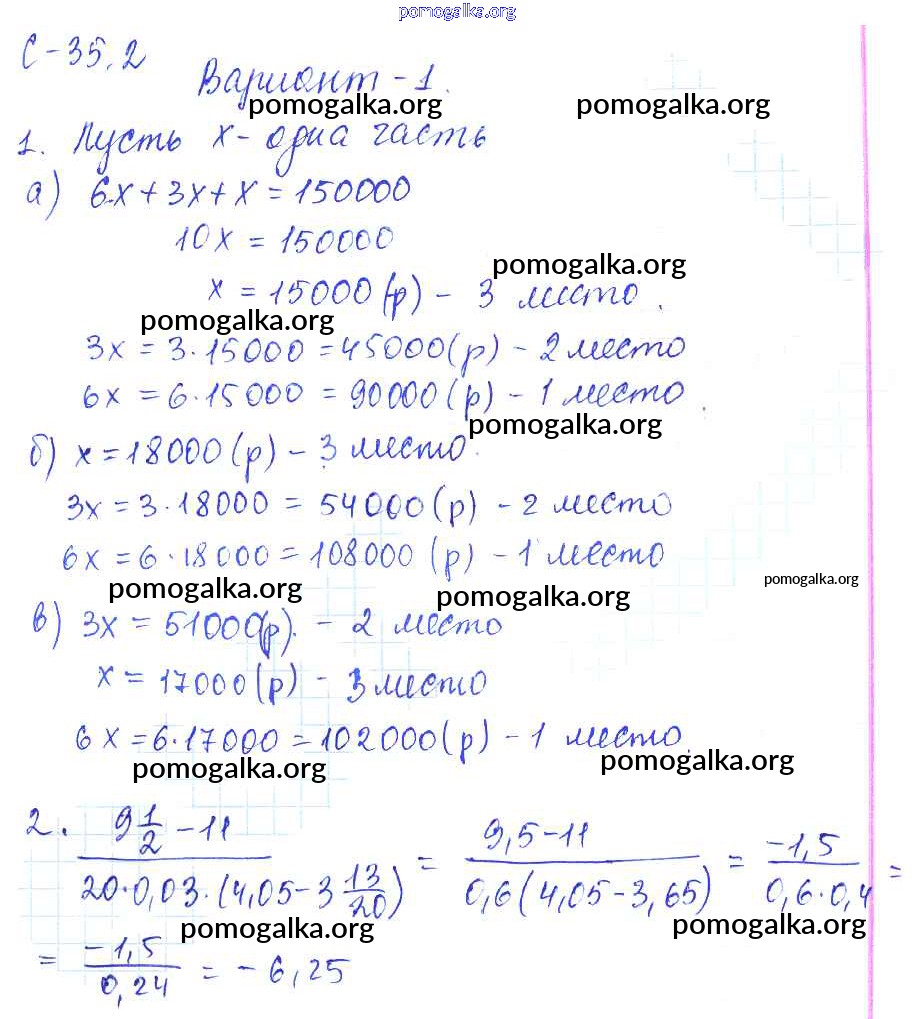 pomogalka.org
С-35.2
Вариант-1.
pomogalka.org pomogalka.org
1. Пусть х - одна часть
а) 6х + 3х + х = 150000
10х = 150000
pomogalka.org
х = 15000 (р) - 3 место.
pomogalka.org
3х = 3·15000 = 45000 (р) - 2 место
6х = 6·15000 = 90000 (р) - 1 место.
pomogalka.org
б) х = 18000 (р) - 3 место.
3х = 3·18000 = 54000 (р) - 2 место
6х = 6·18000 = 108000 (р) - 1 место
pomogalka.org pomogalka.org pomogalka.org
в) 3х = 51000 (р). - 2 место
х = 17000 (р) - 3 место
6х = 6·17000 = 102000 (р) - 1 место.
pomogalka.org pomogalka.org
2. (9 1/2 - 11) / (20·0,03·(4,05 - 3 13/20)) = (9,5 - 11) / (0,6(4,05 - 3,65)) = -1,5 / (0,6·0,4) =
pomogalka.org pomogalka.org
= -1,5 / 0,24 = -6,25